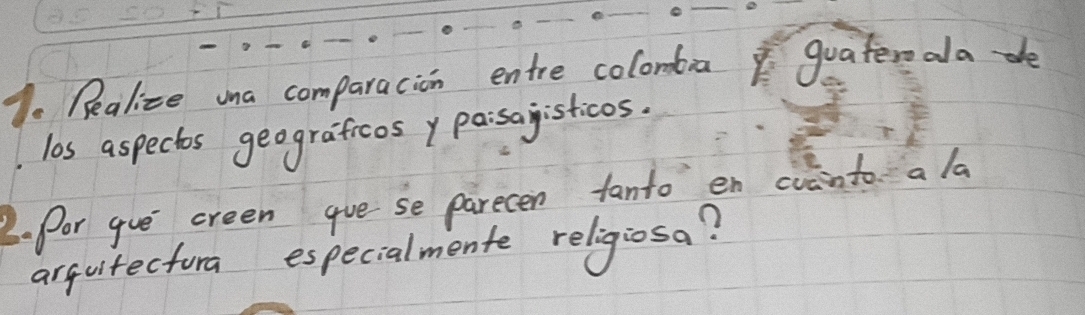 1. Realize una comparación entre colombia y guatemala de
los aspectos geográficos y paisajisticos.
2. Por qué creen que se parecen tanto en cuánto a la
arquitectura especialmente religiosa?